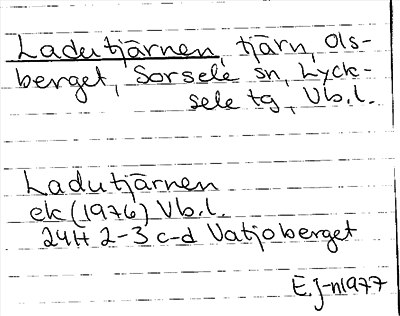 Ladutjärnen, tjärn, Ols-
berget, Sorsele sn, Lyck-
sele tg, Vb.l.
Ladutjärnen
ek (1976) Vb.l.
24H 2-3 c-d Vatjoberget
E.J-n 1977